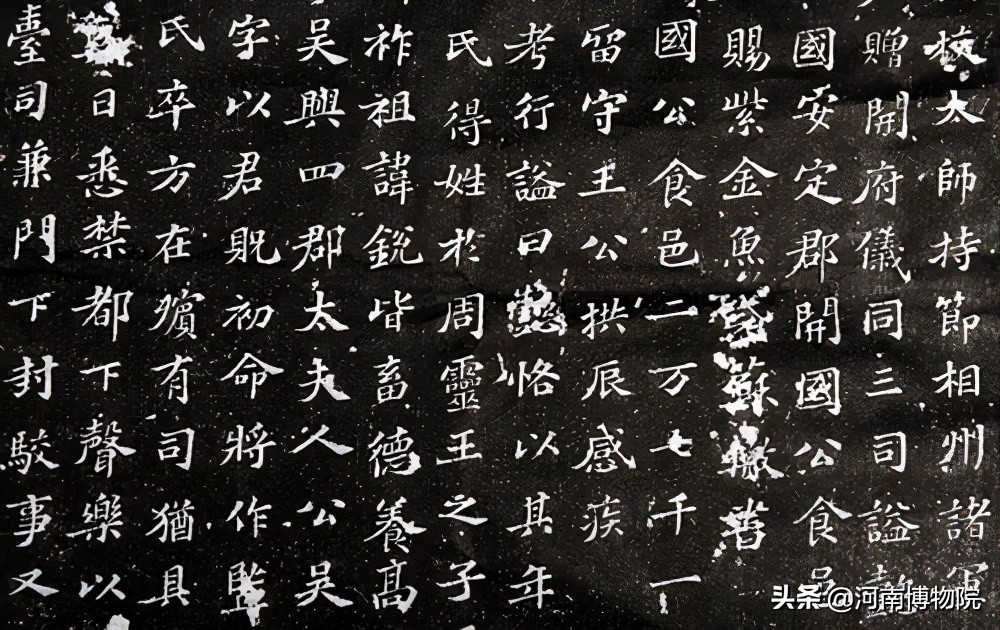 挍太師持節相州諸軍
贈開府儀同三司謚懿
國安定郡開國公食邑
賜紫金魚袋蘇轍書
國公食邑二万七千一
留守王公拱辰感疾
考行謚曰懿恪以其年
氏得姓於周靈王之子
祚祖諱銳皆畜德養高
吴興四郡太夫人公吴
字以君貺初命將作監
氏卒方在殯有司猶具
日悉禁都下聲樂以
臺司兼門下封駮事又
头条 @河南博物院